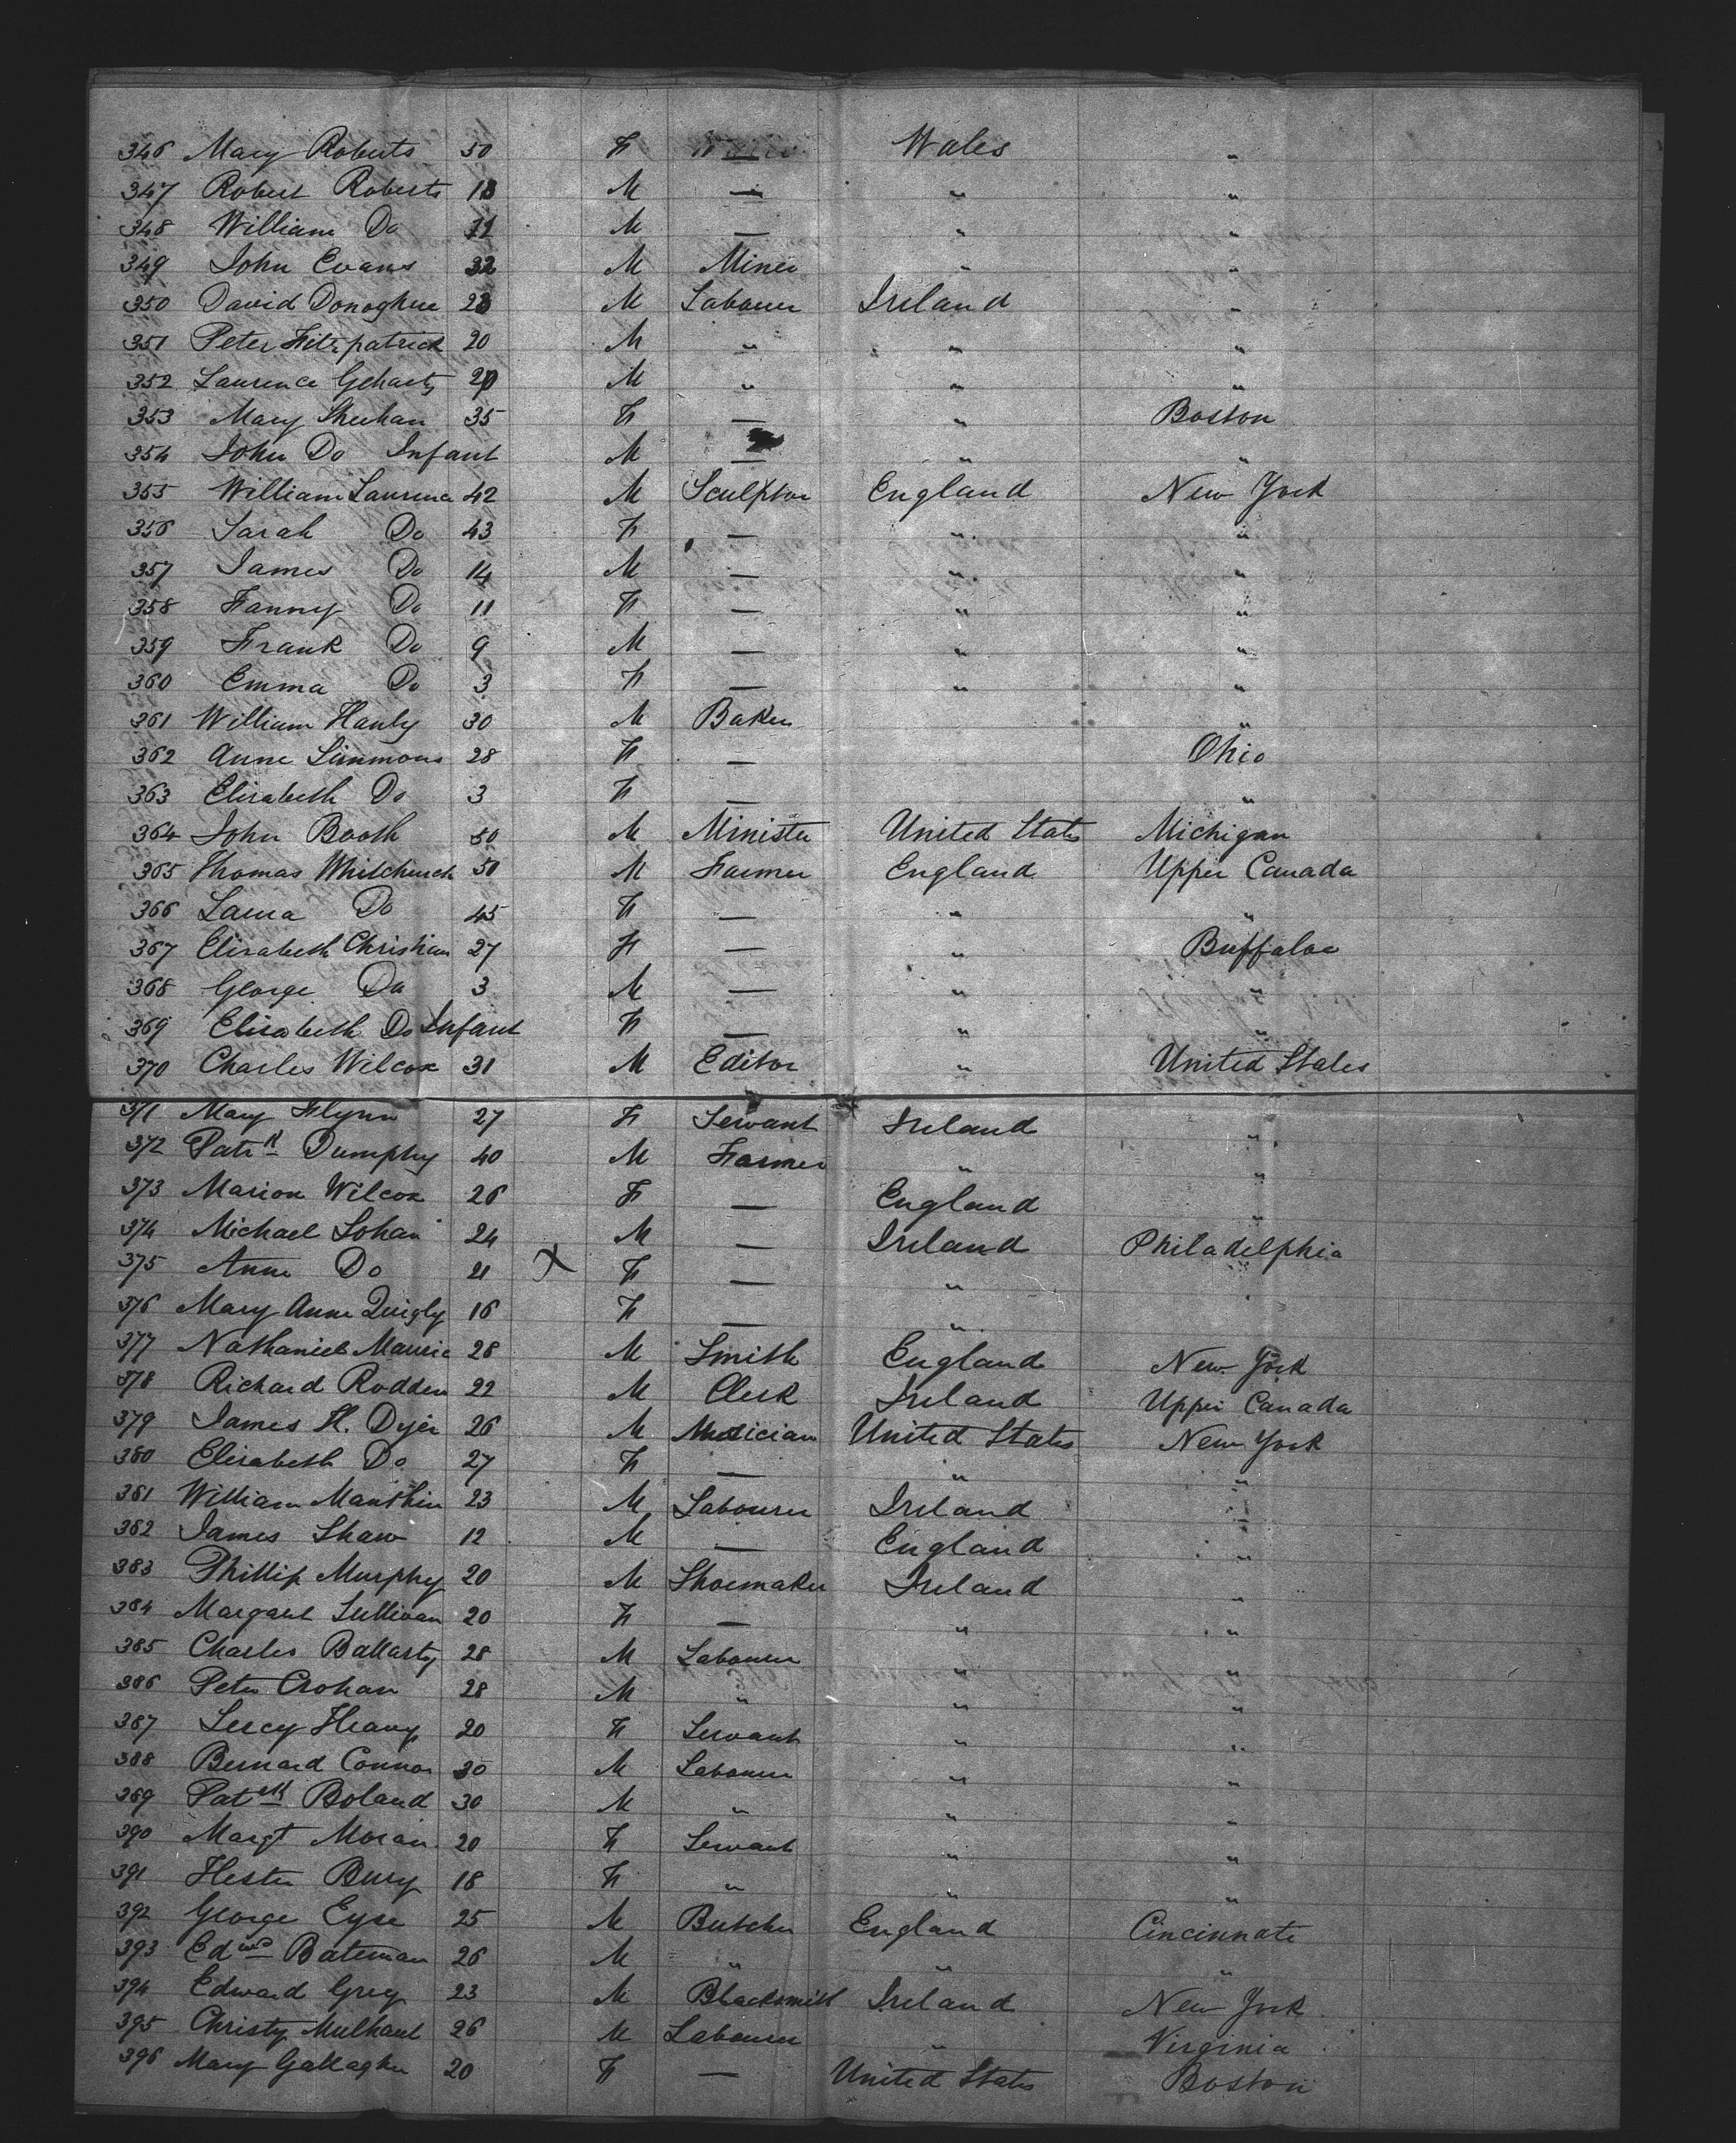 346 Mary Roberts 50 F — Wales "
347 Robert Roberts 18 M — " "
348 William Do 11 M — " "
349 John Evans 32 M Miner " "
350 David Donoghue 23 M Labourer Ireland "
351 Peter Fitzpatrick 20 M " " "
352 Laurence Geharty 20 M " " "
353 Mary Sheehan 35 F — " Boston
354 John Do Infant M — " "
355 William Laurence 42 M Sculptor England New York
356 Sarah Do 43 F — " "
357 James Do 14 M — " "
358 Fanny Do 11 F — " "
359 Frank Do 9 M — " "
360 Emma Do 3 F — " "
361 William Hanly 30 M Baker "
362 Anne Simmons 28 F — Ohio
363 Elizabeth Do 3 F — "
364 John Booth 50 M Minister United States Michigan
365 Thomas Whitchurch 50 M Farmer England Upper Canada
366 Laura Do 45 F — " "
367 Elizabeth Christian 27 F — " Buffaloe
368 George Do 3 M — " "
369 Elizabeth Do Infant F — " "
370 Charles Wilcox 31 M Editor " United States
371 Mary Flynn 27 F Servant Ireland "
372 Patk Dumphy 40 M Farmer " "
373 Marion Wilcox 26 F — England "
374 Michael Lohan 24 M — Ireland Philadelphia
375 Anne Do 21 X F — " "
376 Mary Anne Quigly 16 F — "
377 Nathaniel 28 M Smith England New York
378 Richard Rodden 22 M Clerk Ireland Upper Canada
379 James H. Dyer 26 M Musician United States New York
380 Elizabeth Do 27 F — " "
381 William 23 M Labourer Ireland "
382 James Shaw 12 M — England "
383 Phillip Murphy 20 M Shoemaker Ireland "
384 Margaret Sullivan 20 F — " "
385 Charles Ballasty 28 M Labourer " "
386 Peter Crohan 28 M " " "
387 Heavy 20 F Servant " "
388 Bernard Connor 30 M Labourer " "
389 Patck Boland 30 M " " "
390 Margt Moran 20 F Servant " "
391 Hester Bury 18 F " " "
392 George Eyre 25 M Butcher England Cincinnate
393 Edwd Bateman 26 M " " "
394 Edward Grey 23 M Blacksmith Ireland New York
395 Christy 26 M Labourer " Virginia
396 Mary Gallagher 20 F — United States Boston